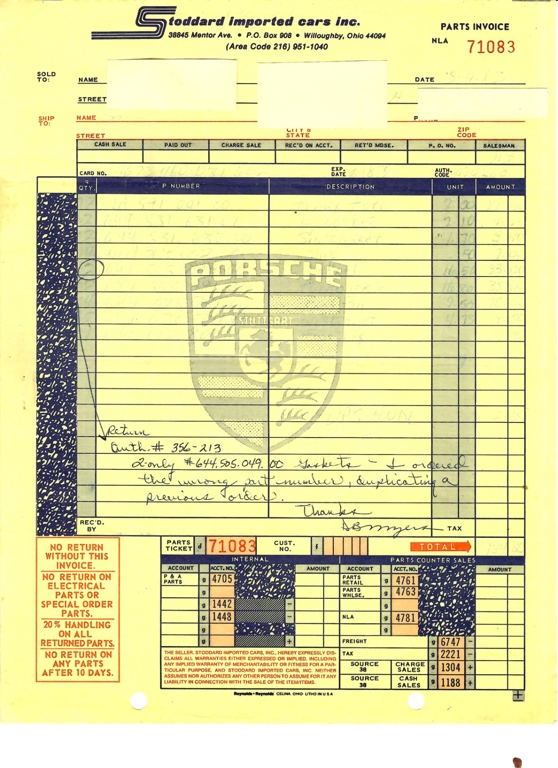 Stoddard imported cars inc.
38845 Mentor Ave. • P.O. Box 908 • Willoughby, Ohio 44094
(Area Code 216) 951-1040
PARTS INVOICE
NLA 71083
SOLD TO:
NAME
DATE
STREET
SHIP TO:
NAME
STREET
CITY & STATE
ZIP CODE
CASH SALE PAID OUT CHARGE SALE REC'D ON ACCT. RET'D MDSE. P. O. NO. SALESMAN
CARD NO. EXP. DATE AUTH. CODE
QTY. P NUMBER DESCRIPTION UNIT AMOUNT
PORSCHE
STUTTGART
Return
Auth.# 356-213
2-only #644.505.049.00 gaskets - I ordered
the wrong part number, duplicating a
previous order.
Thanks
REC'D. BY
TAX
NO RETURN
WITHOUT THIS
INVOICE.
NO RETURN ON
ELECTRICAL
PARTS OR
SPECIAL ORDER
PARTS.
20% HANDLING
ON ALL
RETURNED PARTS.
NO RETURN ON
ANY PARTS
AFTER 10 DAYS.
PARTS TICKET 71083 CUST. NO. TOTAL
INTERNAL PARTS COUNTER SALES
ACCOUNT ACCT. NO. AMOUNT ACCOUNT ACCT. NO. AMOUNT
P & A PARTS 4705 PARTS RETAIL 4761
PARTS WHLSE. 4763
1442 -
1448 - NLA 4781
+
FREIGHT 6747 -
TAX 2221 -
SOURCE 38 CHARGE SALES 1304 +
SOURCE 38 CASH SALES 1188 +
THE SELLER, STODDARD IMPORTED CARS, INC., HEREBY EXPRESSLY DIS-
CLAIMS ALL WARRANTIES EITHER EXPRESSED OR IMPLIED, INCLUDING
ANY IMPLIED WARRANTY OF MERCHANTABILITY OR FITNESS FOR A PAR-
TICULAR PURPOSE, AND STODDARD IMPORTED CARS, INC. NEITHER
ASSUMES NOR AUTHORIZES ANY OTHER PERSON TO ASSUME FOR IT ANY
LIABILITY IN CONNECTION WITH THE SALE OF THE ITEM/ITEMS.
Reynolds+Reynolds CELINA, OHIO LITHO IN U S A